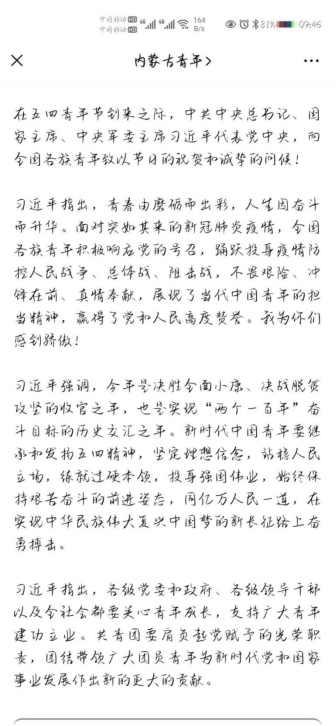 中国移动HD 中国移动HD 164 B/s 81% 09:46
内蒙古青年>
在五四青年节到来之际，中共中央总书记、国
家主席、中央军委主席习近平代表党中央，向
全国各族青年致以节日的祝贺和诚挚的问候！
习近平指出，青春由磨砺而出彩，人生因奋斗
而升华。面对突如其来的新冠肺炎疫情，全国
各族青年积极响应党的号召，踊跃投身疫情防
控人民战争、总体战、阻击战，不畏艰险、冲
锋在前、真情奉献，展现了当代中国青年的担
当精神，赢得了党和人民高度赞誉。我为你们
感到骄傲！
习近平强调，今年是决胜全面小康、决战脱贫
攻坚的收官之年，也是实现“两个一百年”奋
斗目标的历史交汇之年。新时代中国青年要继
承和发扬五四精神，坚定理想信念，站稳人民
立场，练就过硬本领，投身强国伟业，始终保
持艰苦奋斗的前进姿态，同亿万人民一道，在
实现中华民族伟大复兴中国梦的新长征路上奋
勇搏击。
习近平指出，各级党委和政府、各级领导干部
以及全社会都要关心青年成长，支持广大青年
建功立业。共青团要肩负起党赋予的光荣职
责，团结带领广大团员青年为新时代党和国家
事业发展作出新的更大的贡献。